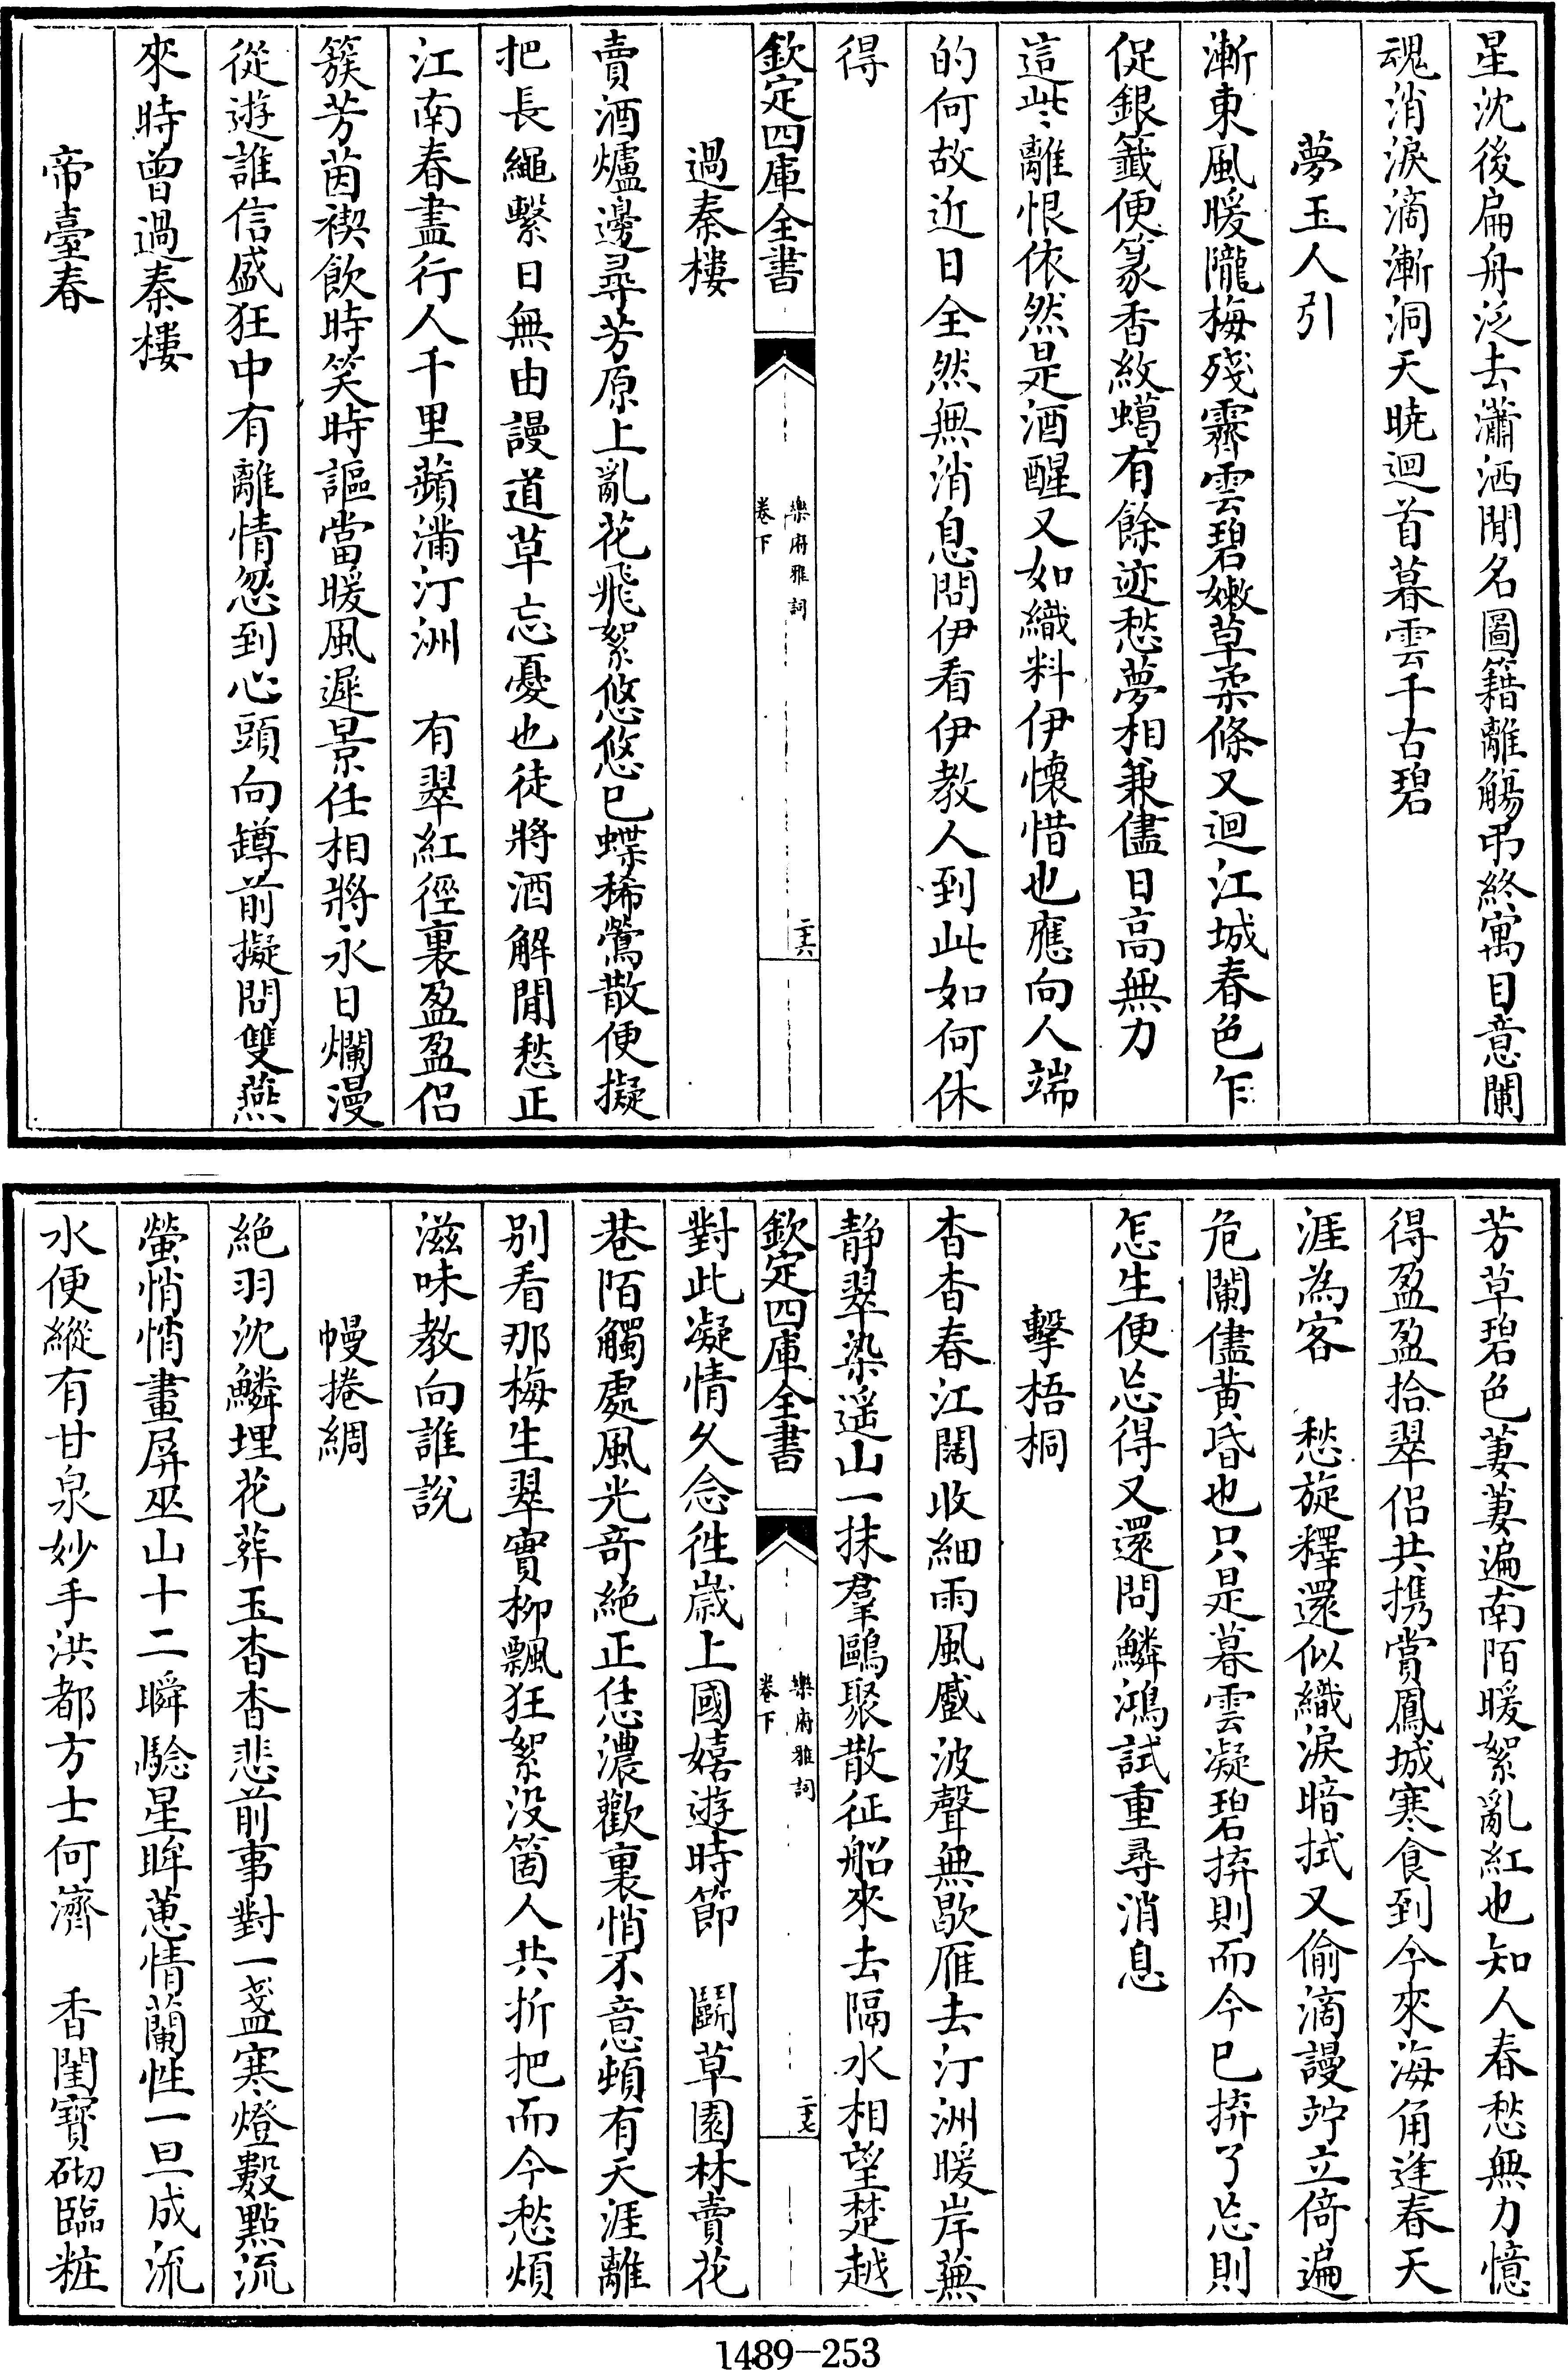 星沈後扁舟泛去瀟洒閒名圖籍離觴弔終寓目意闌
魂消淚滴漸洞天曉迴首暮雲千古碧
夢玉人引
漸東風暖隴梅殘霽雲碧嫩草柔條又迴江城春色乍
促銀籤便篆香紋蠟有餘迹愁夢相兼儘日高無力
這些離恨依然是酒醒又如織料伊懐惜也應向人端
的何故近日全然無消息問伊看伊教人到此如何休
得
欽定四庫全書
樂府雅詞
卷下
二十六
過秦樓
賣酒爐邊尋芳原上亂花飛絮悠悠已蝶稀鶯散便擬
把長繩繫日無由謾道草忘憂也徒將酒解閒愁正
江南春盡行人千里蘋滿汀洲　有翠紅徑裏盈盈侣
簇芳茵禊飲時笑時謳當暖風遲景任相將永日爛漫
從遊誰信盛狂中有離情忽到心頭向罇前擬問雙燕
來時曾過秦樓
帝臺春
芳草碧色萋萋遍南陌暖絮亂紅也知人春愁無力憶
得盈盈拾翠侣共携賞鳳城寒食到今來海角逢春天
涯為客　愁旋釋還似織淚暗拭又偷滴謾竚立倚遍
危闌儘黄昏也只是暮雲凝碧拚則而今已拚了忘則
怎生便忘得又還問鱗鴻試重尋消息
擊梧桐
杳杳春江闊收細雨風蹙波聲無歇雁去汀洲暖岸蕪
静翠染遥山一抹羣鷗聚散征船來去隔水相望楚越
欽定四庫全書
樂府雅詞
卷下
二十七
對此凝情久念徃歲上國嬉遊時節　鬭草園林賣花
巷陌觸處風光竒絶正恁濃歡裏悄不意頓有天涯離
别看那梅生翠實柳飄狂絮没箇人共折把而今愁煩
滋味教向誰說
幔捲綢
絶羽沈鱗埋花葬玉杳杳悲前事對一盞寒燈數點流
螢悄悄畫屏巫山十二瞬騐星眸蕙情蘭性一旦成流
水便縱有甘泉妙手洪都方士何濟　香閨寳砌臨粧
1489-253